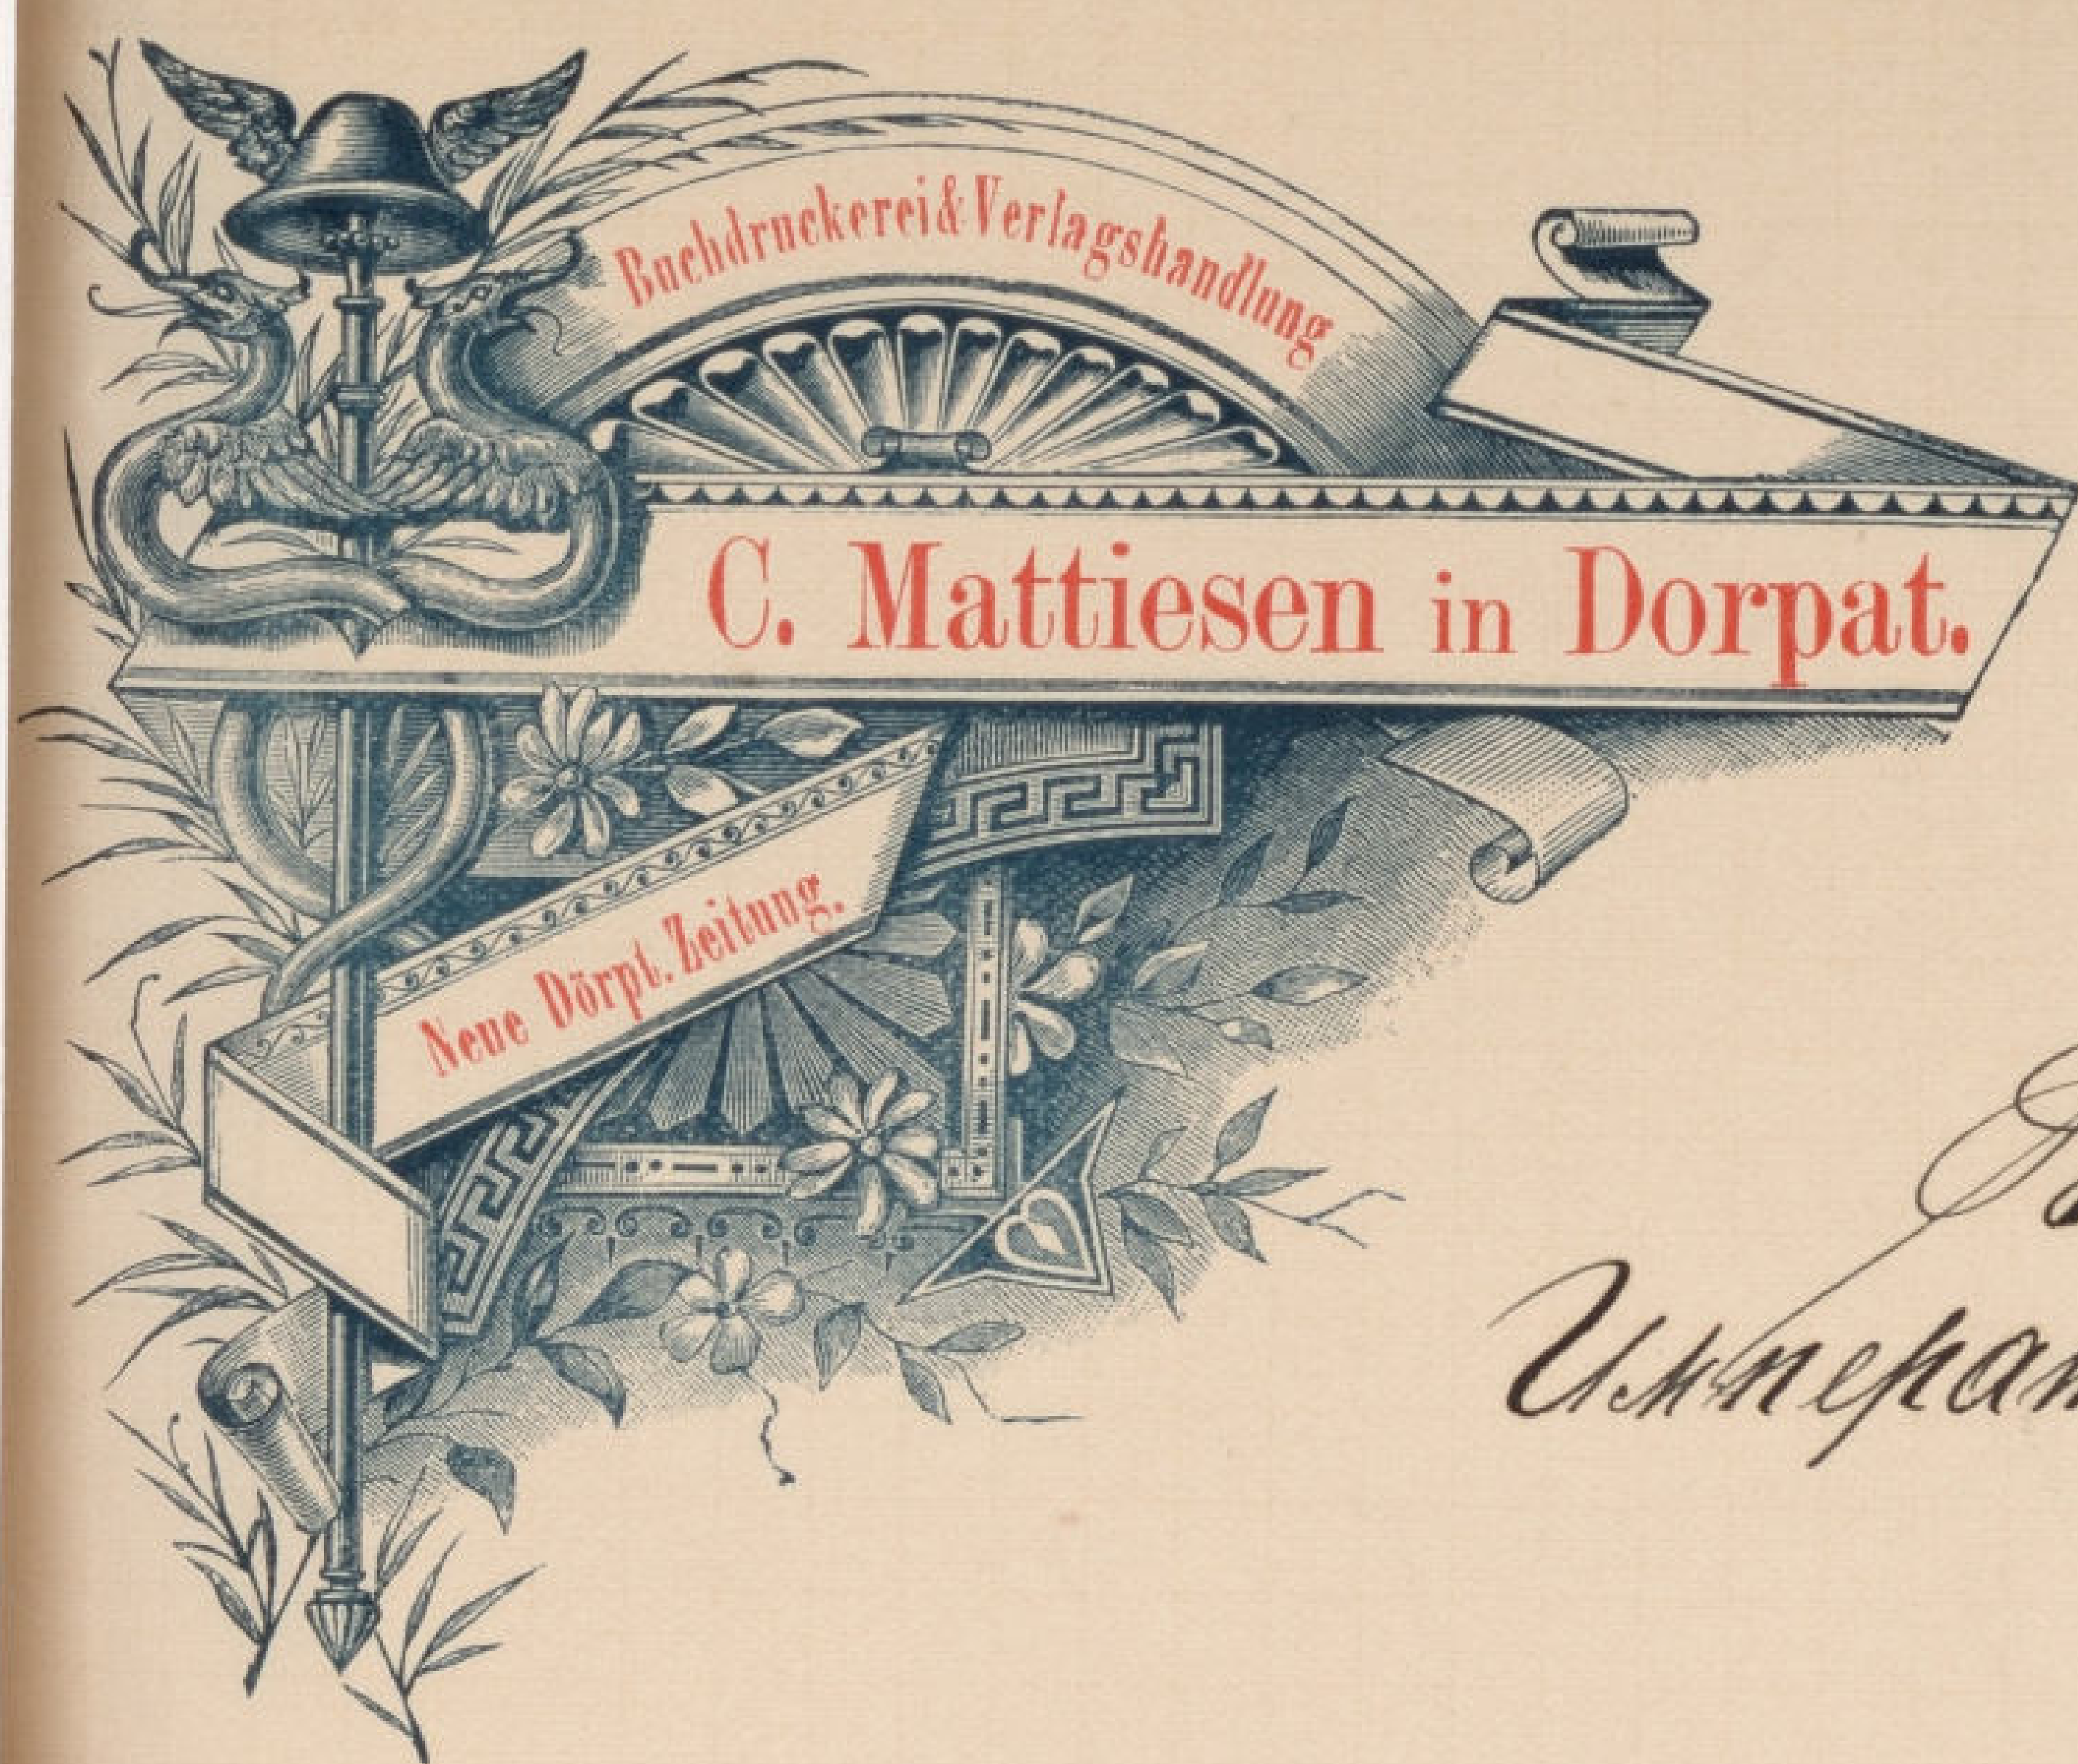 Buchdruckerei & Verlagshandlung
C. Mattiesen in Dorpat.
Neue Dörpt. Zeitung.